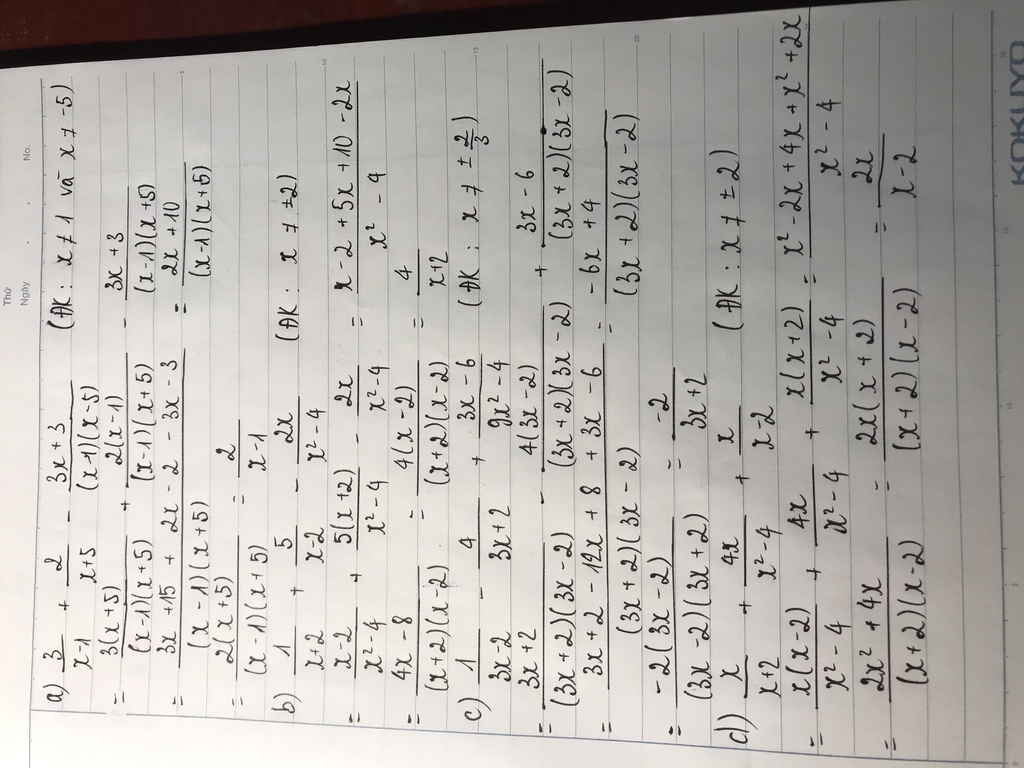 Thứ
Ngày No.
a) 3/(x-1) + 2/(x+5) - (3x+3)/((x-1)(x-5)) (ĐK: x ≠ 1 và x ≠ -5)
= 3(x+5)/((x-1)(x+5)) + 2(x-1)/((x-1)(x+5)) - (3x+3)/((x-1)(x+5))
= (3x+15 + 2x-2-3x-3)/((x-1)(x+5)) = (2x+10)/((x-1)(x+5))
= 2(x+5)/((x-1)(x+5)) = 2/(x-1)
b) 1/(x+2) + 5/(x-2) - 2x/(x²-4) (ĐK: x ≠ ±2)
= (x-2)/(x²-4) + 5(x+2)/(x²-4) - 2x/(x²-4) = (x-2+5x+10-2x)/(x²-4)
= (4x-8)/((x+2)(x-2)) = 4(x-2)/((x+2)(x-2)) = 4/(x+2)
c) 1/(3x-2) - 4/(3x+2) + (3x-6)/(9x²-4) (ĐK: x ≠ ±2/3)
= (3x+2)/((3x+2)(3x-2)) - 4(3x-2)/((3x+2)(3x-2)) + (3x-6)/((3x+2)(3x-2))
= (3x+2-12x+8+3x-6)/((3x+2)(3x-2)) = (-6x+4)/((3x+2)(3x-2))
= -2(3x-2)/((3x-2)(3x+2)) = -2/(3x+2)
d) x/(x+2) + 4x/(x²-4) + x/(x-2) (ĐK: x ≠ ±2)
= x(x-2)/(x²-4) + 4x/(x²-4) + x(x+2)/(x²-4) = (x²-2x+4x+x²+2x)/(x²-4)
= (2x²+4x)/((x+2)(x-2)) = 2x(x+2)/((x+2)(x-2)) = 2x/(x-2)
KOKUYO